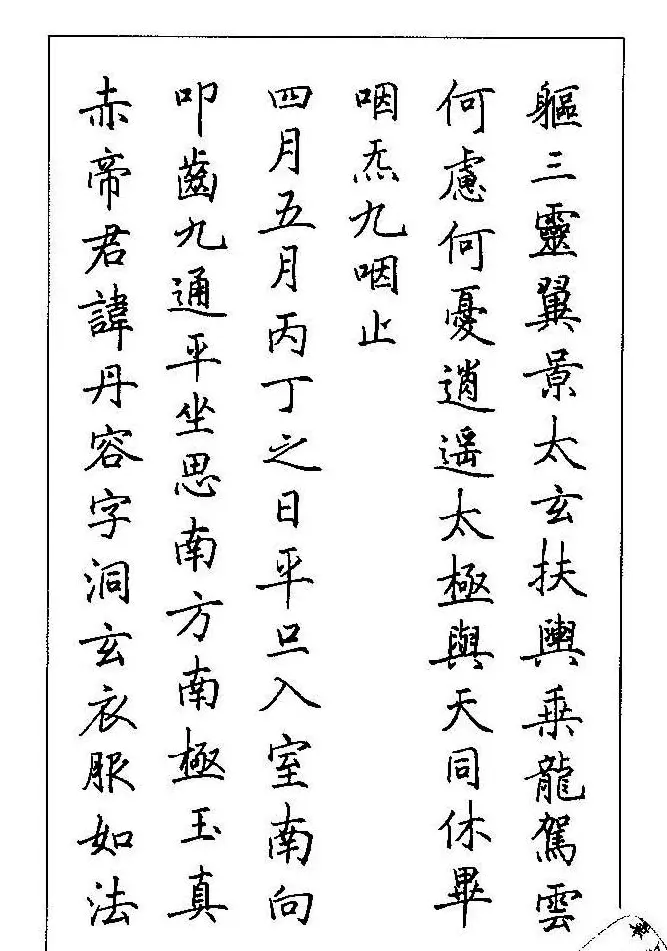 軀三靈翼景太玄扶輿乗龍駕雲
何慮何憂逍遥太極與天同休畢
咽炁九咽止
四月五月丙丁之日平旦入室南向
叩齒九通平坐思南方南極玉真
赤帝君諱丹容字洞玄衣服如法